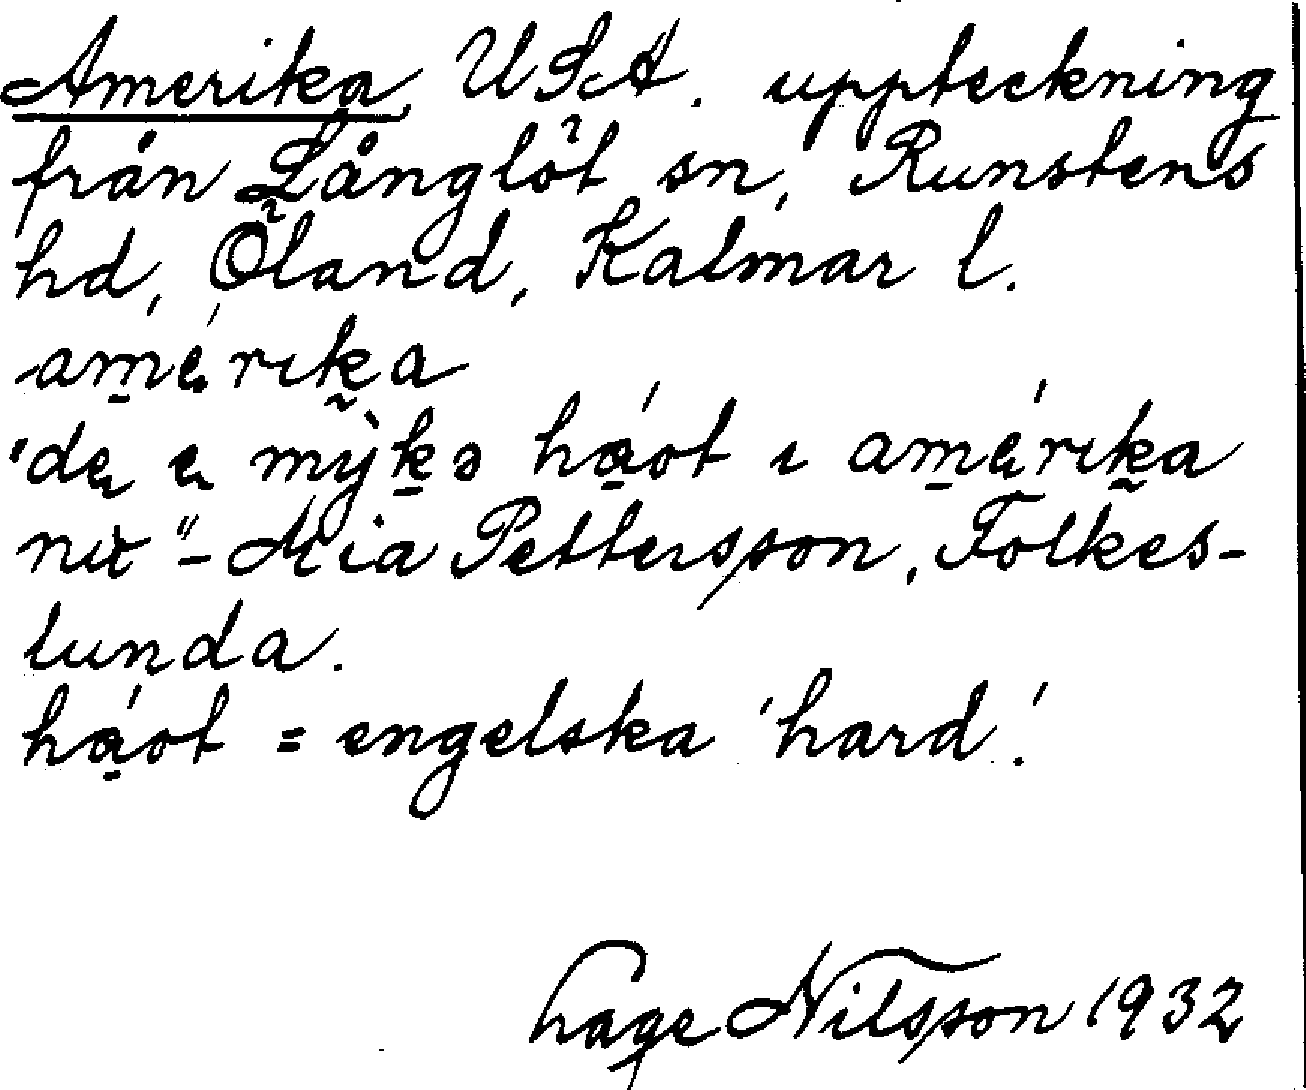 Amerika, USA. uppteckning
från Långlöt sn, Runstens
hd, Öland, Kalmar l.
amérıka
"de e mỳkə háot ı amérıka
nu" - Mia Pettersson, Folkes-
lunda.
háot = engelska 'hard'.
Hage Nilsson 1932